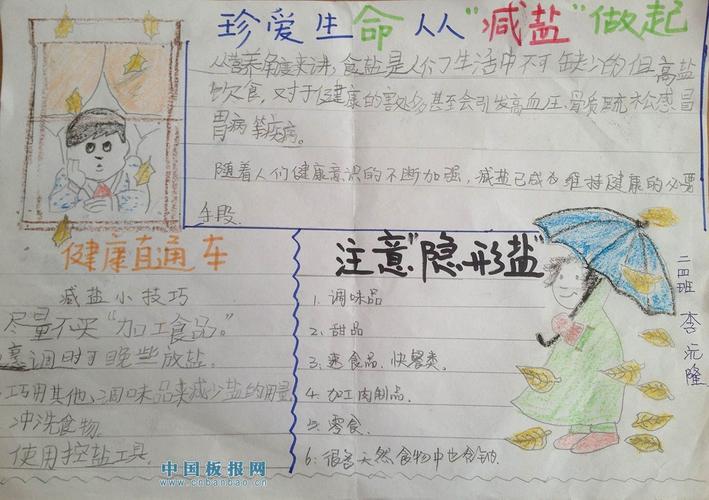 珍爱生命从人"减盐"做起
从营养角度来讲,食盐是人们生活中不可缺少的但高盐
饮食,对于健康的害处多甚至会引发高血压.骨质疏松感冒
胃病等疾病。
随着人们健康意识的不断加强,减盐已成为维持健康的必要
手段.
健康直通车
减盐小技巧
尽量不买"加工食品。"
烹调时晚些放盐.
巧用其他调味品来减少盐的用量
冲洗食物.
使用控盐工具.
注意"隐形盐"
1. 调味品
2. 甜品
3. 速食品.快餐类.
4. 加工肉制品.
5. 零食.
6: 很多天然食物中也含钠.
二四班 李沅隆
中国板报网
www.cnbanbao.cn